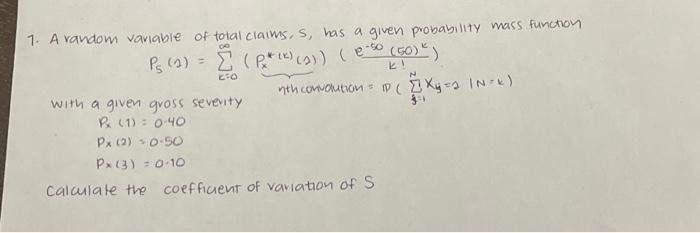 7. A random variable of total claims, S, has a given probability mass function
P_S (2) = ∑_{k=0}^{∞} (P_x^{*(k)} (2)) ( e^{-50} (50)^k / k! )
nth convolution = P ( ∑_{j=1}^{N} X_j = 2 | N = k )
with a given gross severity
P_x (1) = 0.40
P_x (2) = 0.50
P_x (3) = 0.10
Calculate the coefficient of variation of S